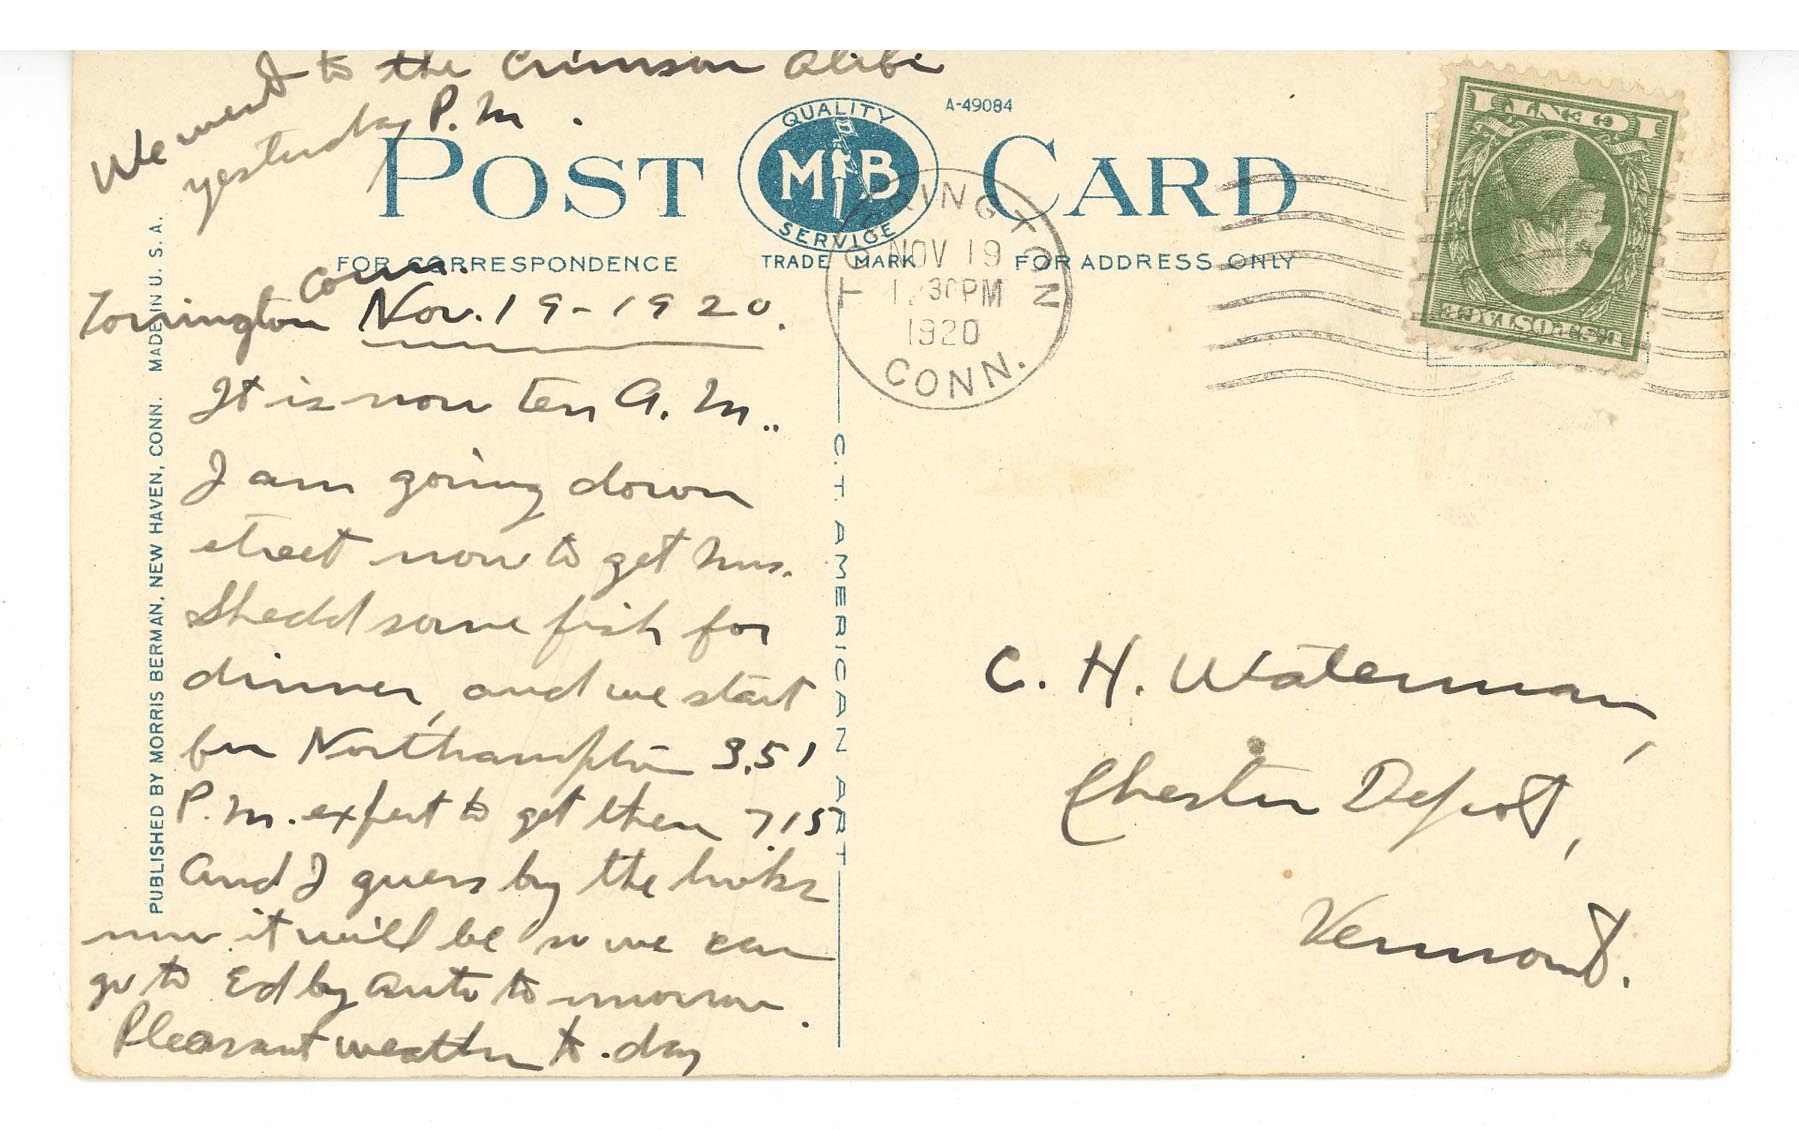 We went to the Crimson Alibi
yesterday P.M.
A-49084
QUALITY
M B
SERVICE
POST CARD
FOR CORRESPONDENCE
TRADE MARK
FOR ADDRESS ONLY
TORRINGTON
NOV 19
1230PM
1920
CONN.
1 CENT 1
U.S. POSTAGE
Conn.
Torrington Nov. 19-1920.
It is now ten A. M..
I am going down
street now to get Mrs.
Shedd some fish for
dinner, and we start
for Northampton 3.51
P.M. expect to get there 7.15
and I guess by the looks
now it will be so we can
go to Ed by auto to morrow.
Pleasant weather to-day
PUBLISHED BY MORRIS BERMAN, NEW HAVEN, CONN. MADE IN U. S. A.
C. T. AMERICAN ART
C. H. Waterman,
Chester Depot,
Vermont.